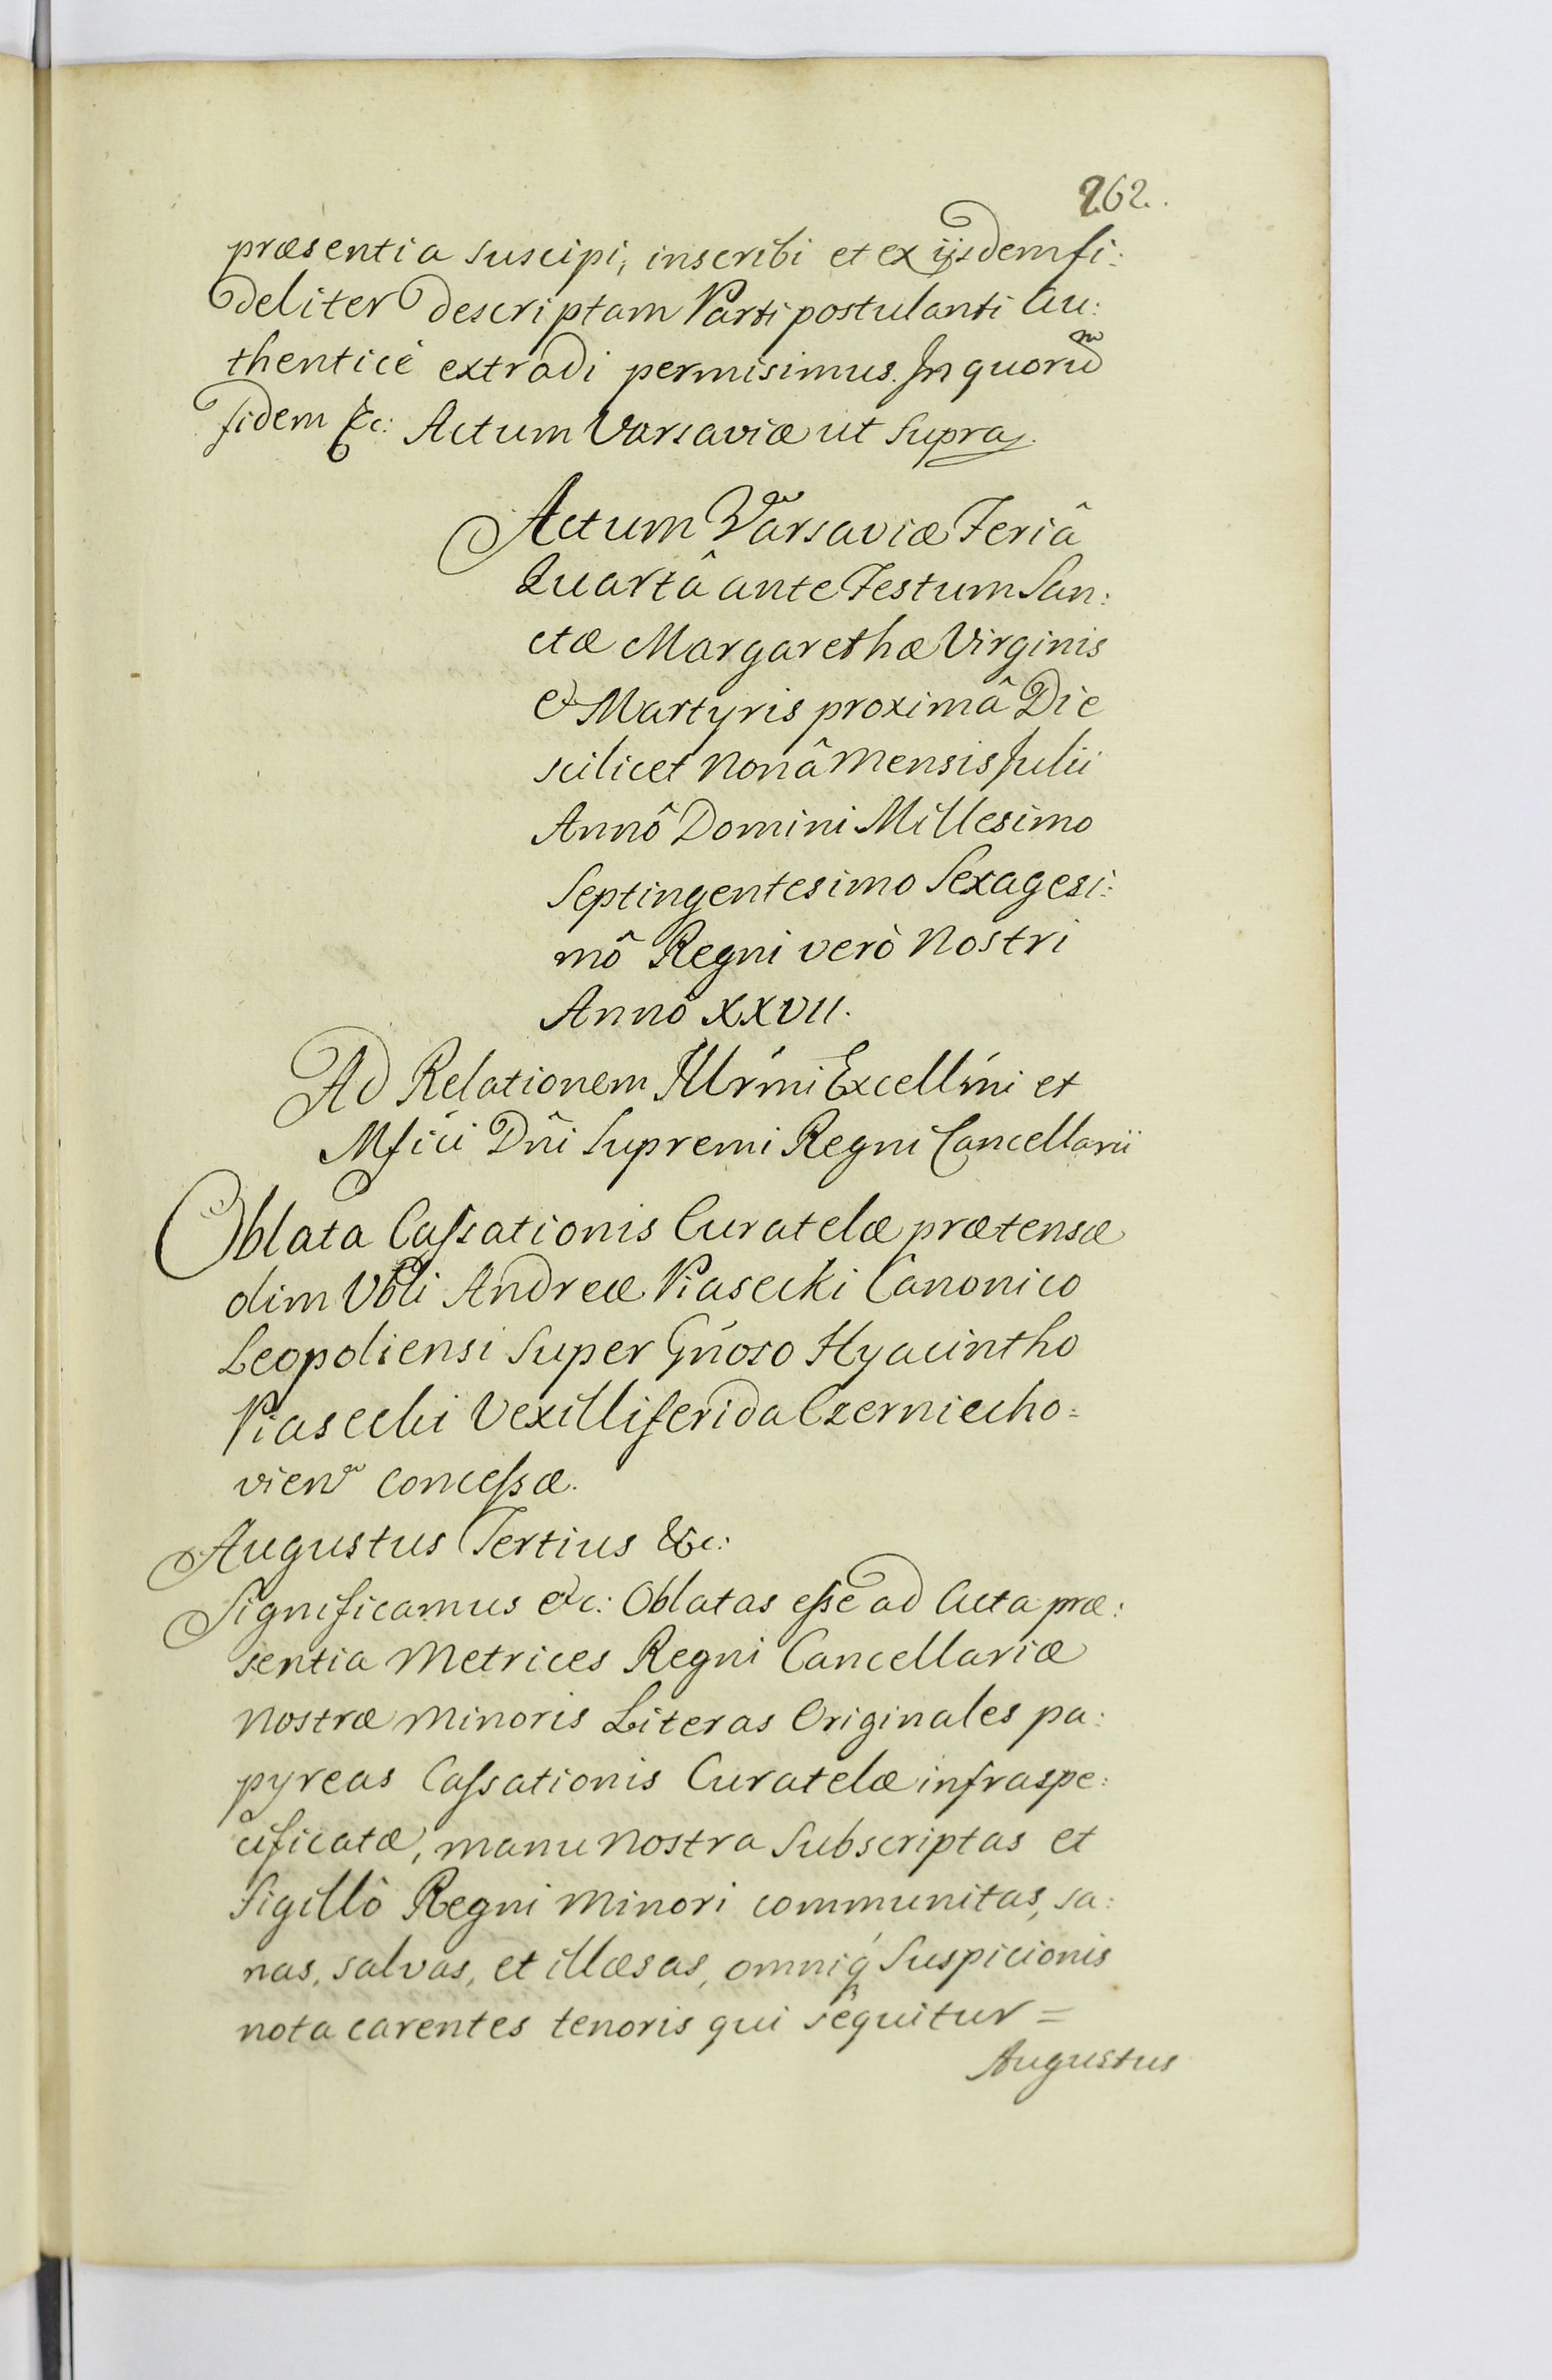 262.
præsentia suscipi, inscribi et ex ijsdem fi:
deliter descriptam Parti postulanti Au:
thenticè extradi permisimus. In quorũ
fidem &c: Actum Varsaviæ ut supra.
Actum Varsaviæ Feriâ
Quartâ ante Festum San:
ctæ Margarethæ Virginis
& Martyris proximâ Die
scilicet nonâ Mensis Julii
Annô Domini Millesimo
Septingentesimo Sexagesi:
mô Regni verò Nostri
Annô XXVII.
Ad Relationem Illrm̃i Excellm̃i et
Mfici Dñi Supremi Regni Cancellarii
Oblata Cassationis Curatelæ prætensæ
olim Vbli Andreæ Piasecki Canonico
Leopoliensi super Gñoso Hyacintho
Piasecki Vexilliferida Czerniecho=
vien̄ concessæ.
Augustus Tertius &c:
Significamus &c: Oblatas esse ad Acta præ:
sentia Metrices Regni Cancellariæ
Nostræ Minoris Literas Originales pa:
pyreas Cassationis Curatelæ infraspe:
cificatæ, manu Nostra Subscriptas et
Sigillô Regni Minori communitas, sa:
nas, salvas, et illæsas, omniq́ Suspicionis
nota carentes tenoris qui sequitur =
Augustus